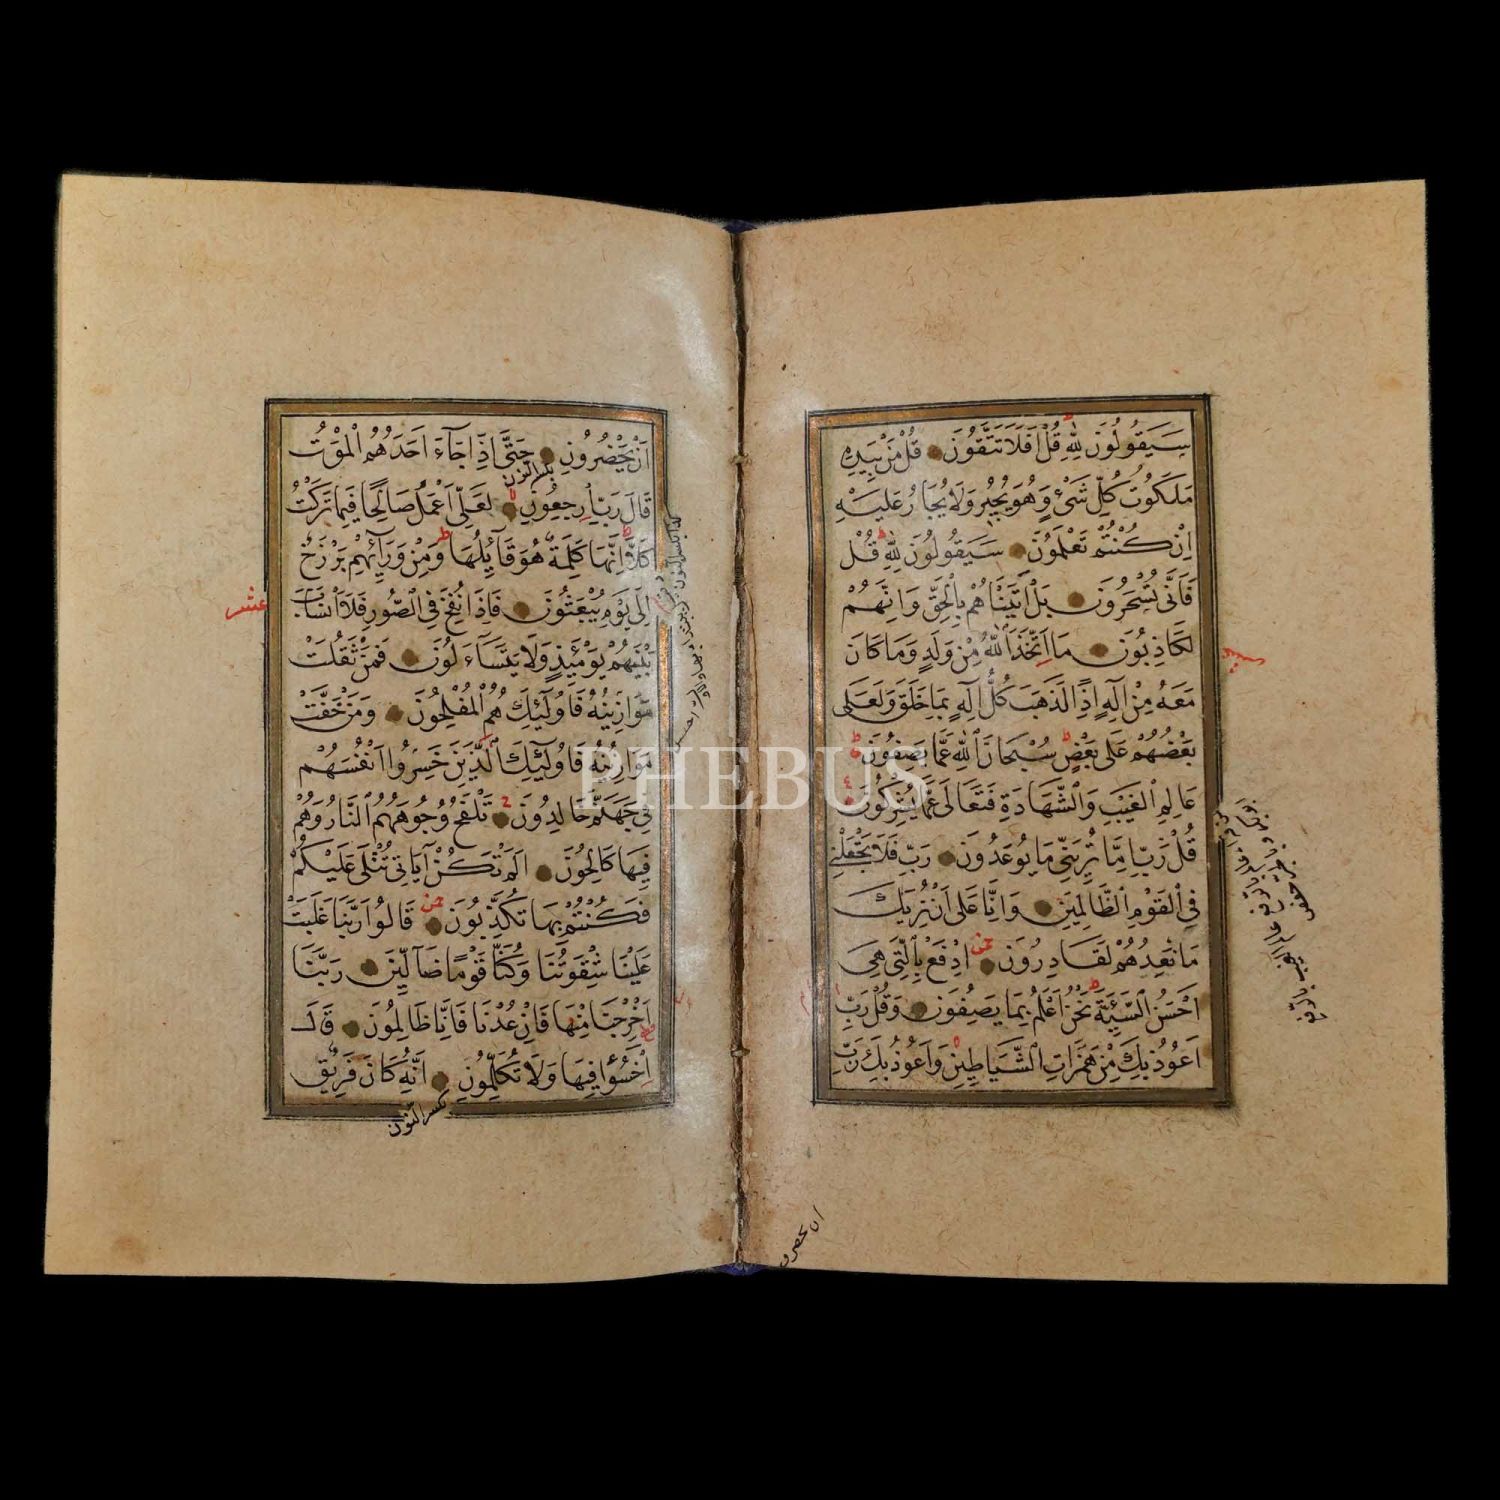 سَيَقُولُونَ لِلّٰهِ قُلْ اَفَلَا تَتَّقُونَ قُلْ مَنْ بِيَدِهِ
مَلَكُوتُ كُلِّ شَىْءٍ وَهُوَ يُجِيرُ وَلَا يُجَارُ عَلَيْهِ
اِنْ كُنْتُمْ تَعْلَمُونَ سَيَقُولُونَ لِلّٰهِ قُلْ
فَاَنّٰى تُسْحَرُونَ بَلْ اَتَيْنَاهُمْ بِالْحَقِّ وَاِنَّهُمْ
لَكَاذِبُونَ مَا اتَّخَذَ اللّٰهُ مِنْ وَلَدٍ وَمَا كَانَ
مَعَهُ مِنْ اِلٰهٍ اِذًا لَذَهَبَ كُلُّ اِلٰهٍ بِمَا خَلَقَ وَلَعَلٰى
بَعْضُهُمْ عَلٰى بَعْضٍ سُبْحَانَ اللّٰهِ عَمَّا يَصِفُونَ
عَالِمِ الْغَيْبِ وَالشَّهَادَةِ فَتَعَالٰى عَمَّا يُشْرِكُونَ
قُلْ رَبِّ اِمَّا تُرِيَنِّى مَا يُوعَدُونَ رَبِّ فَلَا تَجْعَلْنِى
فِى الْقَوْمِ الظَّالِمِينَ وَاِنَّا عَلٰى اَنْ نُرِيَكَ
مَا نَعِدُهُمْ لَقَادِرُونَ اِدْفَعْ بِالَّتِى هِىَ
اَحْسَنُ السَّيِّئَةَ نَحْنُ اَعْلَمُ بِمَا يَصِفُونَ وَقُلْ رَبِّ
اَعُوذُ بِكَ مِنْ هَمَزَاتِ الشَّيَاطِينِ وَاَعُوذُ بِكَ رَبِّ
ان يحضرو
اَنْ يَحْضُرُونِ حَتّٰى اِذَا جَاءَ اَحَدَهُمُ الْمَوْتُ
بكسر النون
قَالَ رَبِّ ارْجِعُونِ لَعَلِّى اَعْمَلُ صَالِحًا فِيمَا تَرَكْتُ
كَلَّا اِنَّهَا كَلِمَةٌ هُوَ قَائِلُهَا وَمِنْ وَرَائِهِمْ بَرْزَخٌ
اِلٰى يَوْمِ يُبْعَثُونَ فَاِذَا نُفِخَ فِى الصُّورِ فَلَا اَنْسَابَ
عشر
بَيْنَهُمْ يَوْمَئِذٍ وَلَا يَتَسَاءَلُونَ فَمَنْ ثَقُلَتْ
مَوَازِينُهُ فَاُولٰئِكَ هُمُ الْمُفْلِحُونَ وَمَنْ خَفَّتْ
مَوَازِينُهُ فَاُولٰئِكَ الَّذِينَ خَسِرُوا اَنْفُسَهُمْ
فِى جَهَنَّمَ خَالِدُونَ تَلْفَحُ وُجُوهَهُمُ النَّارُ وَهُمْ
فِيهَا كَالِحُونَ اَلَمْ تَكُنْ اٰيَاتِى تُتْلٰى عَلَيْكُمْ
فَكُنْتُمْ بِهَا تُكَذِّبُونَ قَالُوا رَبَّنَا غَلَبَتْ
عَلَيْنَا شِقْوَتُنَا وَكُنَّا قَوْمًا ضَالِّينَ رَبَّنَا
اَخْرِجْنَا مِنْهَا فَاِنْ عُدْنَا فَاِنَّا ظَالِمُونَ قَالَ
اخْسَؤُا فِيهَا وَلَا تُكَلِّمُونِ اِنَّهُ كَانَ فَرِيقٌ
بكسر النون
PHEBUS